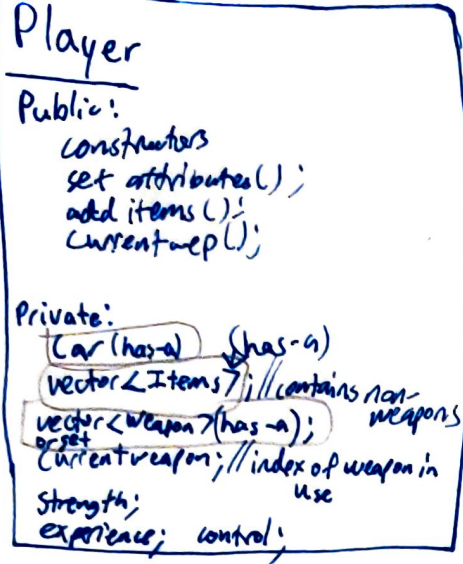 Player
Public:
constructors
set attributes();
add items();
Currentwep();
Private:
Car (has-a) (has-a)
vector<Items>; //contains non-weapons
vector<weapon>(has-a);
or set
Currentweapon; //index of weapon in use
strength;
experience; control;